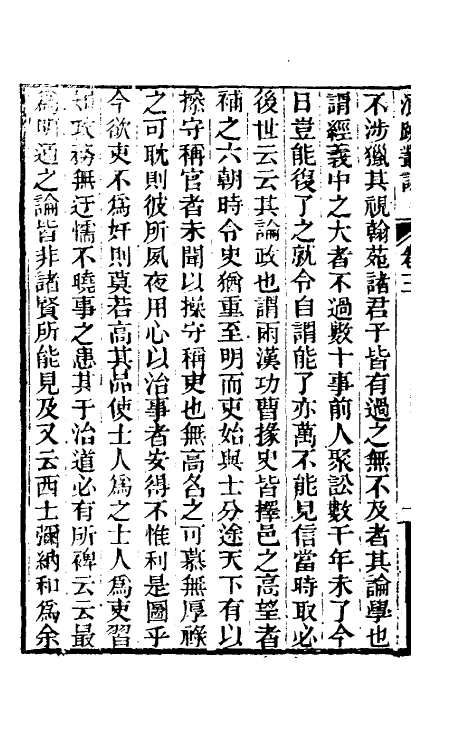 不涉獵其視翰苑諸君子皆有過之無不及者其論學也
謂經義中之大者不過數十事前人聚訟數千年未了今
日豈能復了之就令自謂能了亦萬不能見信當時取必
後世云云其論政也謂兩漢功曹掾史皆擇邑之高望者
補之六朝時令史猶重至明而吏始與士分途天下有以
操守稱官者未聞以操守稱吏也無高名之可慕無厚祿
之可耽則彼所夙夜用心以治事者安得不惟利是圖乎
今欲吏不爲奸則莫若高其品使士人爲之士人爲吏習
知政務無迂懦不曉事之患其于治道必有所裨云云最
爲明通之論皆非諸賢所能見及又云西士彌納和爲余
卷三